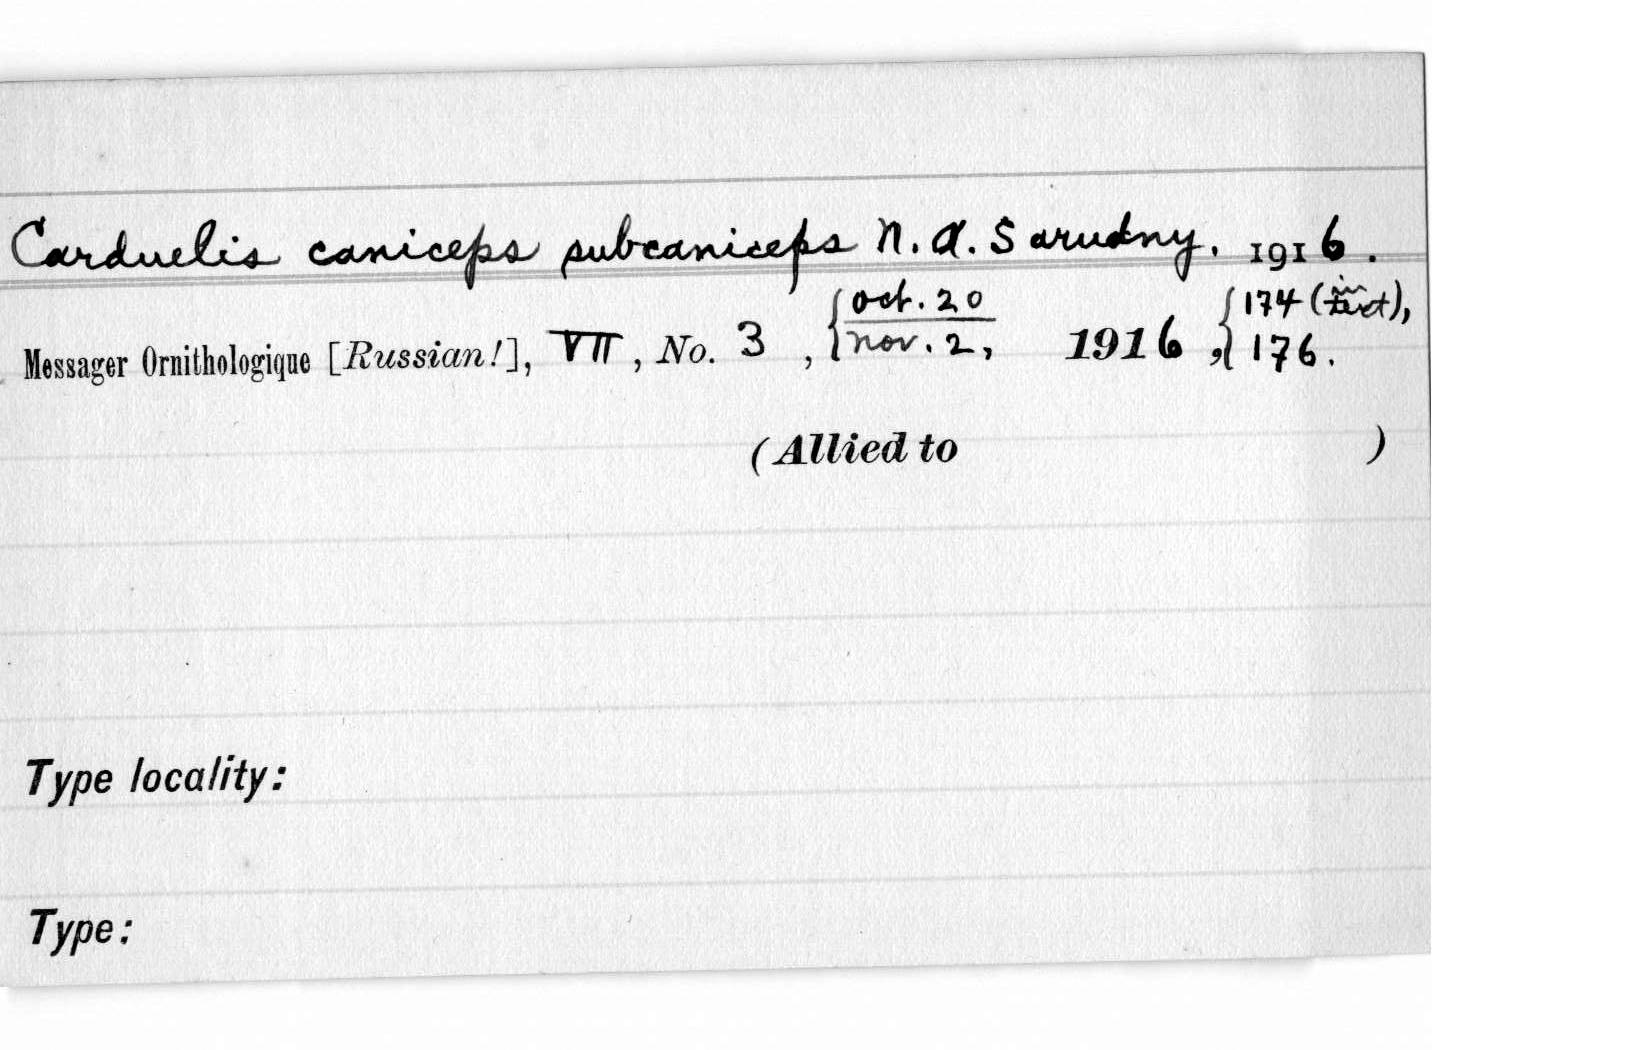 Carduelis caniceps subcaniceps N. A. Sarudny. 1916.
Messager Ornithologique [Russian!], VII, No. 3, { Oct. 20 / Nov. 2, 1916, { 174 (in text), 176.
(Allied to )
Type locality:
Type: